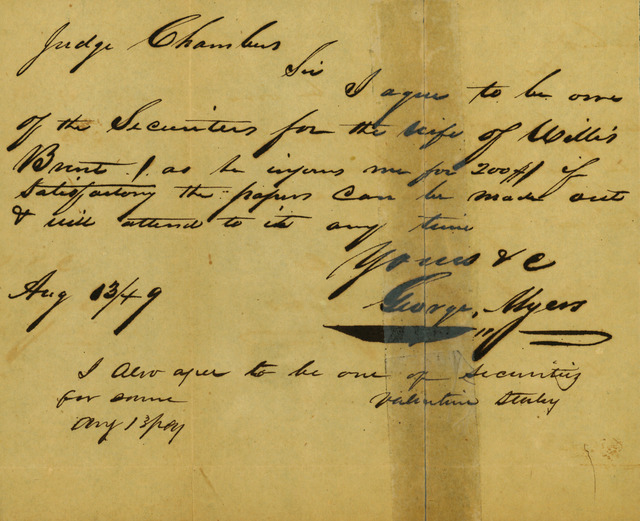 Judge Chambers
Sir I agree to be one
of the Securities for the wife of Willis
as he injous me for 200 if
Satisfactory the papers can be made out
& will attend to it any time
Yours & C
Aug 13/49
George Myers
I also agree to be one of securities
for same Valentine
Aug 13